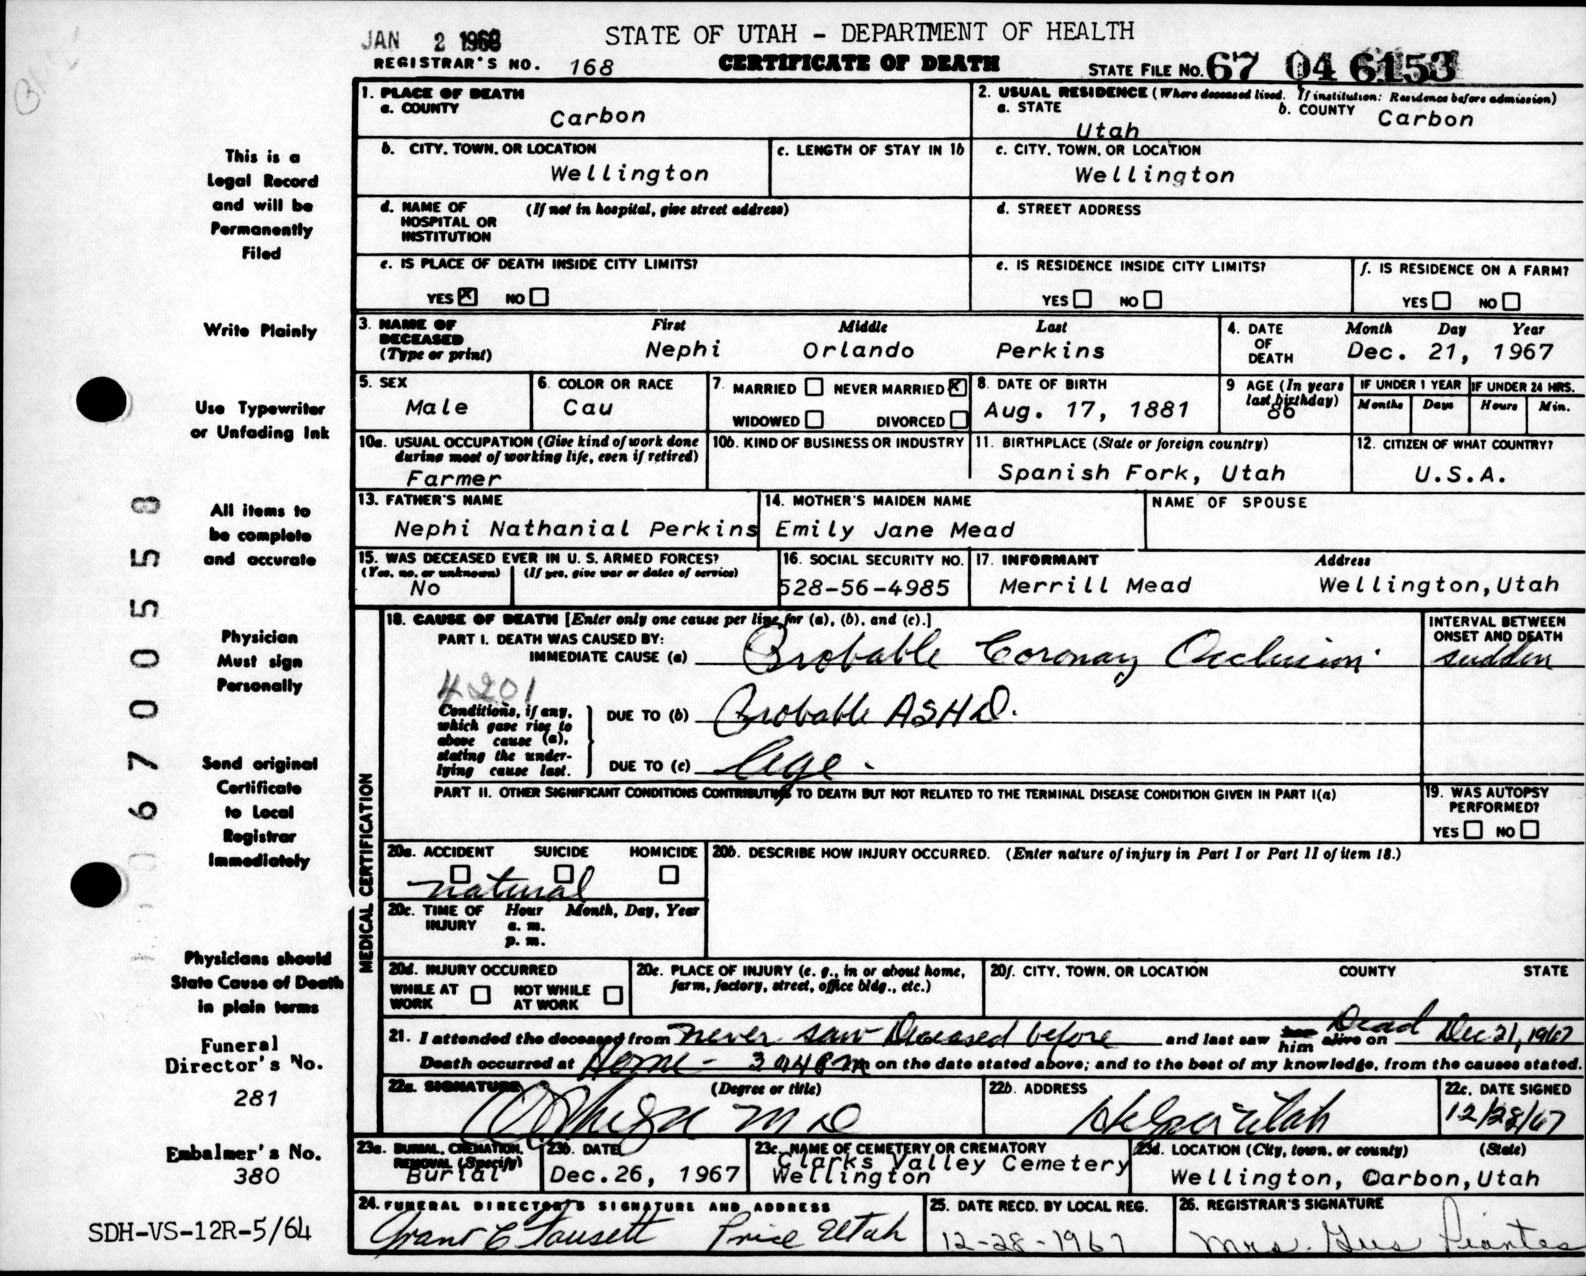 JAN 2 1968
STATE OF UTAH - DEPARTMENT OF HEALTH
REGISTRAR'S NO. 168
CERTIFICATE OF DEATH
STATE FILE NO. 67 04 6153
1. PLACE OF DEATH
a. COUNTY Carbon
2. USUAL RESIDENCE (Where deceased lived. If institution: Residence before admission)
a. STATE Utah
b. COUNTY Carbon
b. CITY, TOWN, OR LOCATION
Wellington
c. LENGTH OF STAY IN 1b
c. CITY, TOWN, OR LOCATION
Wellington
d. NAME OF HOSPITAL OR INSTITUTION
(If not in hospital, give street address)
d. STREET ADDRESS
e. IS PLACE OF DEATH INSIDE CITY LIMITS?
YES X NO
e. IS RESIDENCE INSIDE CITY LIMITS?
YES NO
f. IS RESIDENCE ON A FARM?
YES NO
3. NAME OF DECEASED (Type or print)
First Middle Last
Nephi Orlando Perkins
4. DATE OF DEATH
Month Day Year
Dec. 21, 1967
5. SEX
Male
6. COLOR OR RACE
Cau
7. MARRIED NEVER MARRIED X
WIDOWED DIVORCED
8. DATE OF BIRTH
Aug. 17, 1881
9 AGE (In years last birthday)
86
IF UNDER 1 YEAR
Months Days
IF UNDER 24 HRS.
Hours Min.
10a. USUAL OCCUPATION (Give kind of work done during most of working life, even if retired)
Farmer
10b. KIND OF BUSINESS OR INDUSTRY
11. BIRTHPLACE (State or foreign country)
Spanish Fork, Utah
12. CITIZEN OF WHAT COUNTRY?
U.S.A.
13. FATHER'S NAME
Nephi Nathanial Perkins
14. MOTHER'S MAIDEN NAME
Emily Jane Mead
NAME OF SPOUSE
15. WAS DECEASED EVER IN U. S. ARMED FORCES?
(Yes, no, or unknown) (If yes, give war or dates of service)
No
16. SOCIAL SECURITY NO.
528-56-4985
17. INFORMANT Address
Merrill Mead Wellington, Utah
18. CAUSE OF DEATH [Enter only one cause per line for (a), (b), and (c).]
PART I. DEATH WAS CAUSED BY:
IMMEDIATE CAUSE (a) Probable Coronary Occlusion
INTERVAL BETWEEN ONSET AND DEATH
sudden
4201
Conditions, if any, which gave rise to above cause (a), stating the underlying cause last.
DUE TO (b) Probable ASHD.
DUE TO (c) Age.
PART II. OTHER SIGNIFICANT CONDITIONS CONTRIBUTING TO DEATH BUT NOT RELATED TO THE TERMINAL DISEASE CONDITION GIVEN IN PART I(a)
19. WAS AUTOPSY PERFORMED?
YES NO
MEDICAL CERTIFICATION
20a. ACCIDENT SUICIDE HOMICIDE
natural
20b. DESCRIBE HOW INJURY OCCURRED. (Enter nature of injury in Part I or Part II of item 18.)
20c. TIME OF INJURY
Hour Month, Day, Year
a. m.
p. m.
20d. INJURY OCCURRED
WHILE AT WORK NOT WHILE AT WORK
20e. PLACE OF INJURY (e. g., in or about home, farm, factory, street, office bldg., etc.)
20f. CITY, TOWN, OR LOCATION COUNTY STATE
21. I attended the deceased from never saw Deceased before and last saw her him alive on Dead Dec 21, 1967
Death occurred at Home - m on the date stated above; and to the best of my knowledge, from the causes stated.
22a. SIGNATURE (Degree or title)
MD
22b. ADDRESS
Helper Utah
22c. DATE SIGNED
12/28/67
23a. BURIAL, CREMATION, REMOVAL (Specify)
Burial
23b. DATE
Dec.26, 1967
23c. NAME OF CEMETERY OR CREMATORY
Clarks Valley Cemetery
Wellington
23d. LOCATION (City, town, or county) (State)
Wellington, Carbon, Utah
24. FUNERAL DIRECTOR'S SIGNATURE AND ADDRESS
Grant C Fausett Price Utah
25. DATE RECD. BY LOCAL REG.
12-28-1967
26. REGISTRAR'S SIGNATURE
Mrs. Gus Piantes
This is a
Legal Record
and will be
Permanently
Filed
Write Plainly
Use Typewriter
or Unfading Ink
All items to
be complete
and accurate
Physician
Must sign
Personally
Send original
Certificate
to Local
Registrar
Immediately
Physicians should
State Cause of Death
in plain terms
Funeral
Director's No.
281
Embalmer's No.
380
SDH-VS-12R-5/64
06700558